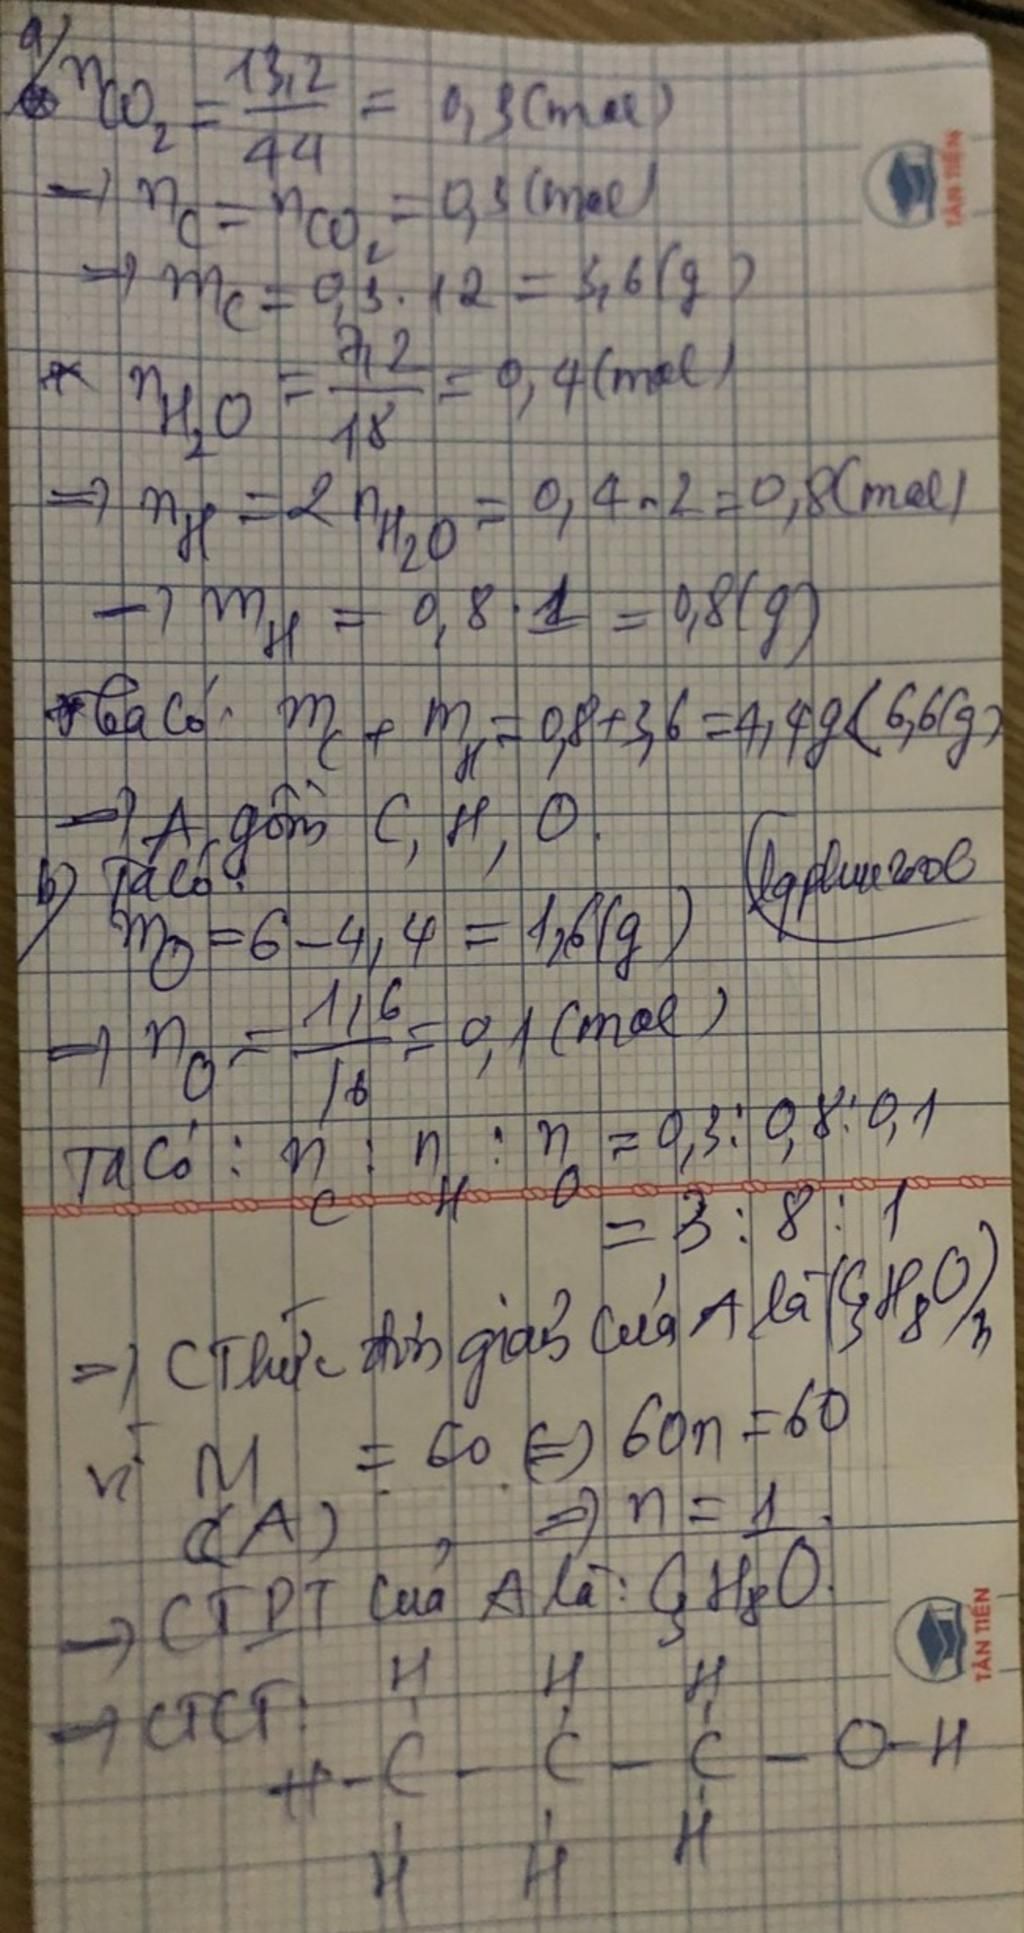 a/
* nCO₂ = 13,2/44 = 0,3 (mol)
→ nC = nCO₂ = 0,3 (mol)
⇒ mC = 0,3 . 12 = 3,6 (g)
* nH₂O = 7,2/18 = 0,4 (mol)
⇒ nH = 2 nH₂O = 0,4 . 2 = 0,8 (mol)
→ mH = 0,8 . 1 = 0,8 (g)
* Ta có: mC + mH = 0,8 + 3,6 = 4,4g < 6,6 (g)
→ A gồm C, H, O.
b) Ta có:
mO = 6 - 4,4 = 1,6 (g)
→ nO = 1,6/16 = 0,1 (mol)
Ta có : nC : nH : nO = 0,3 : 0,8 : 0,1
= 3 : 8 : 1
⇒ CThức đơn giản của A là (C₃H₈O)n
vì M(A) = 60 ⇔ 60n = 60
⇒ n = 1.
→ CTPT của A là: C₃H₈O.
→ CTCT:
H H H
H - C - C - C - O - H
H H H
TÂN TIẾN
TÂN TIẾN